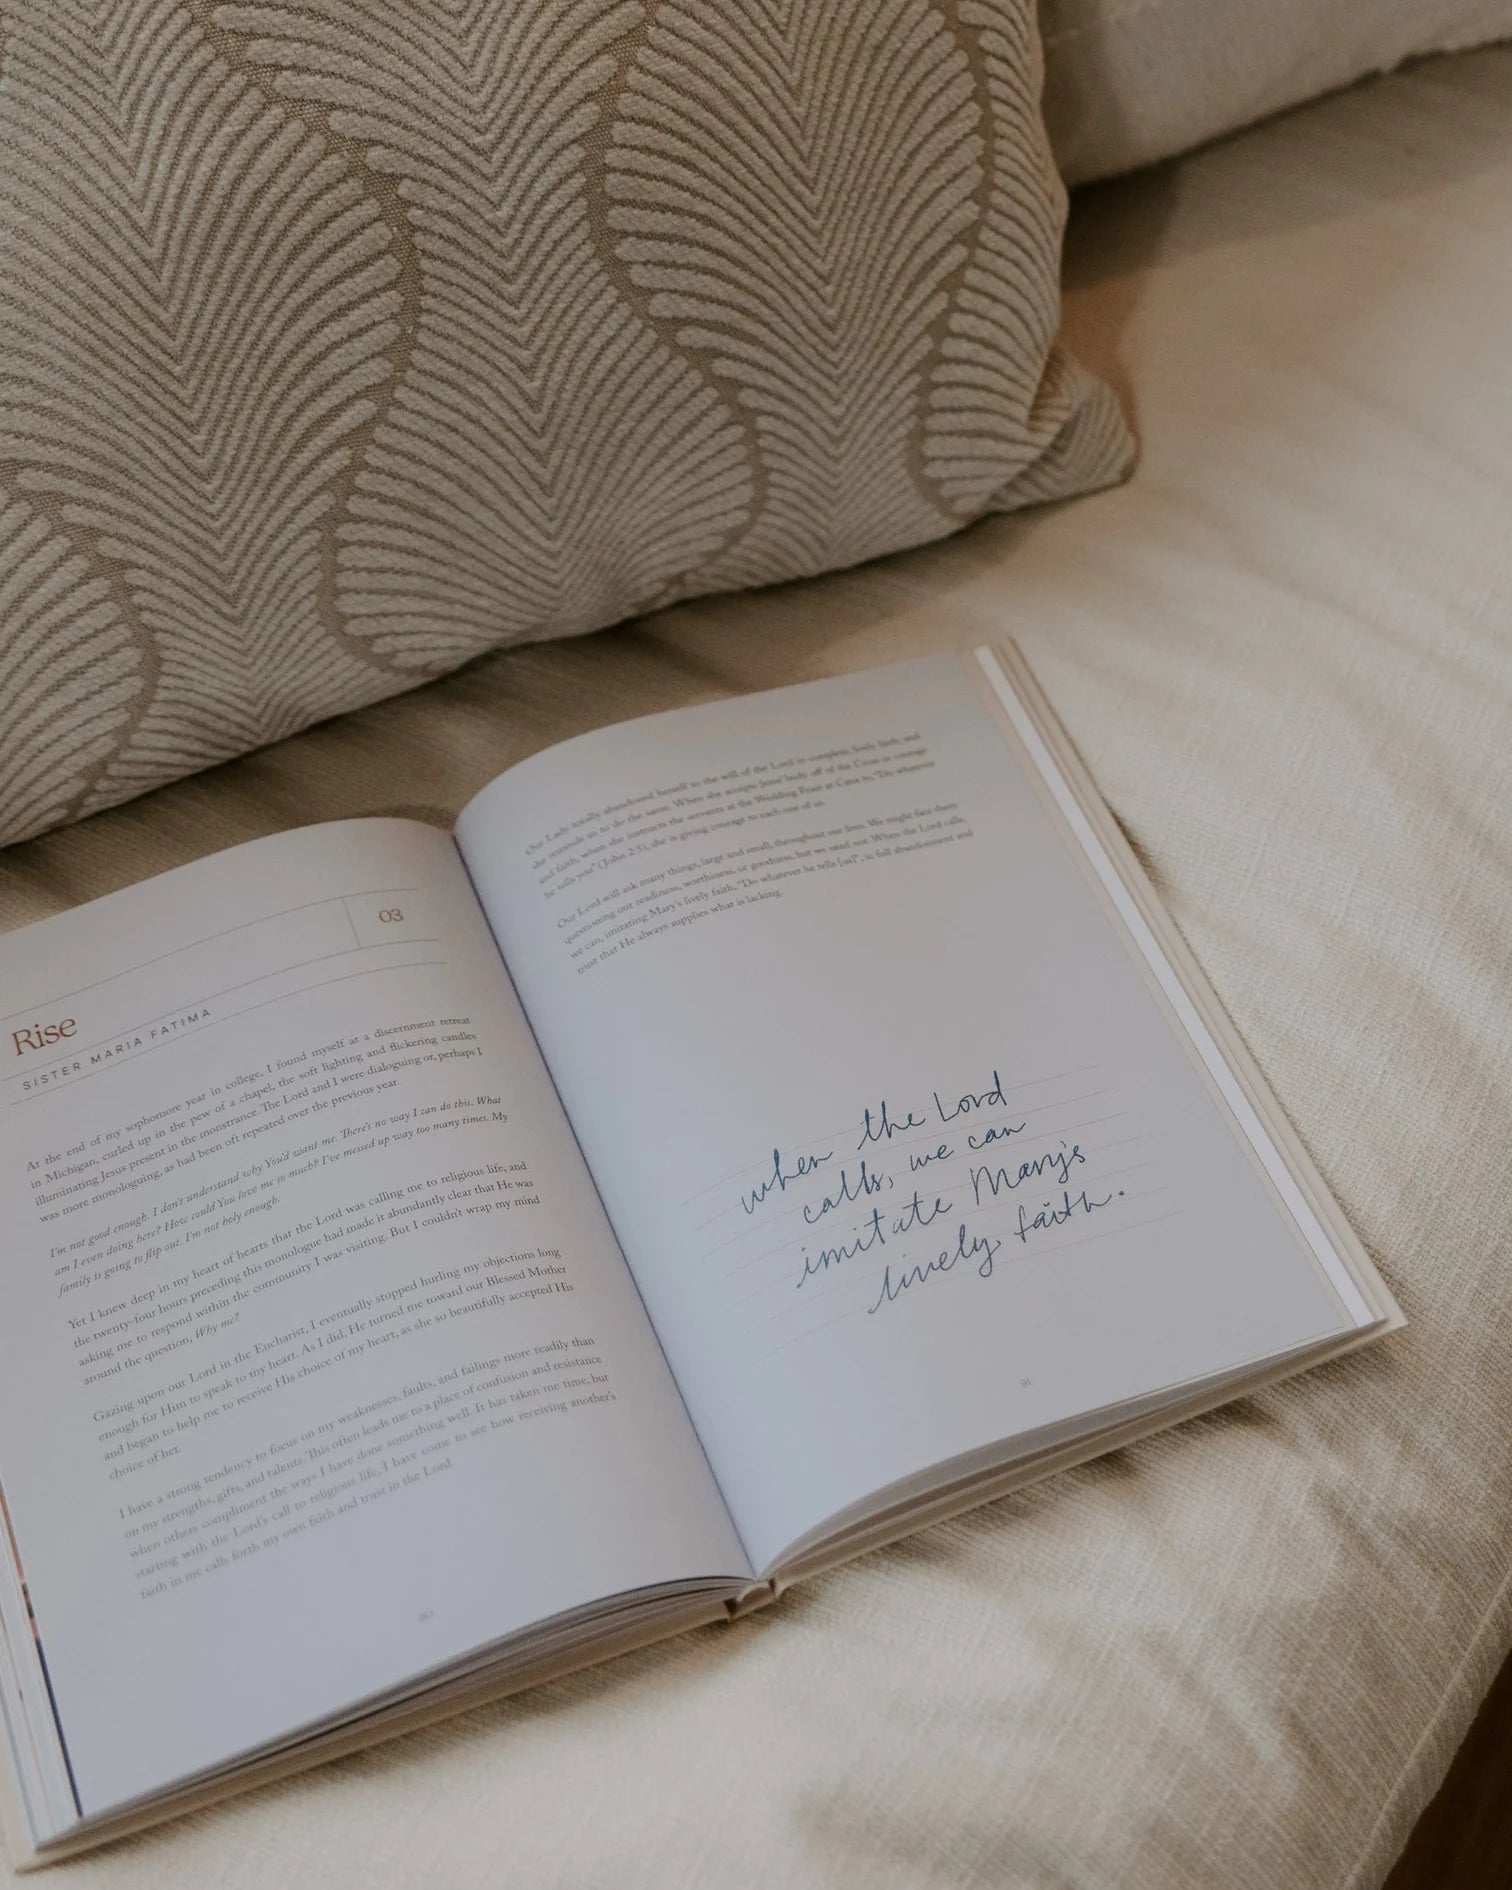 03
Rise
SISTER MARIA FATIMA
At the end of my sophomore year in college, I found myself at a discernment retreat
in Michigan, curled up in the pew of a chapel, the soft lighting and flickering candles
illuminating Jesus present in the monstrance. The Lord and I were dialoguing or, perhaps I
was more monologuing, as had been oft repeated over the previous year.
I'm not good enough. I don't understand why You'd want me. There's no way I can do this. What
am I even doing here? How could You love me so much? I've messed up way too many times. My
family is going to flip out. I'm not holy enough.
Yet I knew deep in my heart of hearts that the Lord was calling me to religious life, and
the twenty-four hours preceding this monologue had made it abundantly clear that He was
asking me to respond within the community I was visiting. But I couldn't wrap my mind
around the question, Why me?
Gazing upon our Lord in the Eucharist, I eventually stopped hurling my objections long
enough for Him to speak to my heart. As I did, He turned me toward our Blessed Mother
and began to help me to receive His choice of my heart, as she so beautifully accepted His
choice of her.
I have a strong tendency to focus on my weaknesses, faults, and failings more readily than
on my strengths, gifts, and talents. This often leads me to a place of confusion and resistance
when others compliment the ways I have done something well. It has taken me time, but
starting with the Lord's call to religious life, I have come to see how receiving another's
faith in me calls forth my own faith and trust in the Lord.
90
Our Lady totally abandoned herself to the will of the Lord in complete, lively faith, and
she reminds us to do the same. When she accepts Jesus' body off of the Cross in courage
and faith, when she instructs the servants at the Wedding Feast at Cana to, "Do whatever
he tells you" (John 2:5), she is giving courage to each one of us.
Our Lord will ask many things, large and small, throughout our lives. We might face them
questioning our readiness, worthiness, or goodness, but we need not. When the Lord calls,
we can, imitating Mary's lively faith, "Do whatever he tells [us]", in full abandonment and
trust that He always supplies what is lacking.
when the Lord
calls, we can
imitate Mary's
lively faith.
91